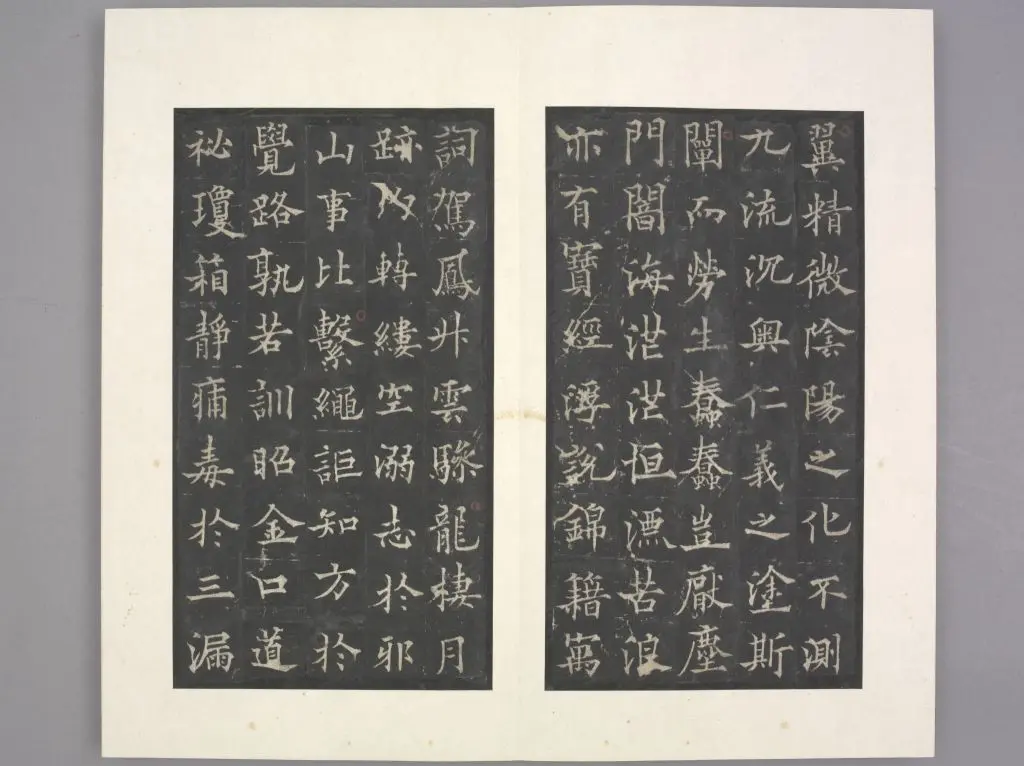 翼精微陰陽之化不測
九流沉奥仁義之塗斯
闡而勞生蠢蠢豈厭塵
門闇海茫茫恒漂苦浪
亦有寶經浮説錦籍寓
詞駕鳳升雲驂龍棲月
跡轉縷空溺志於邪
山事比繫繩詎知方於
覺路孰若訓昭金口道
祕瓊箱靜痡毒於三漏